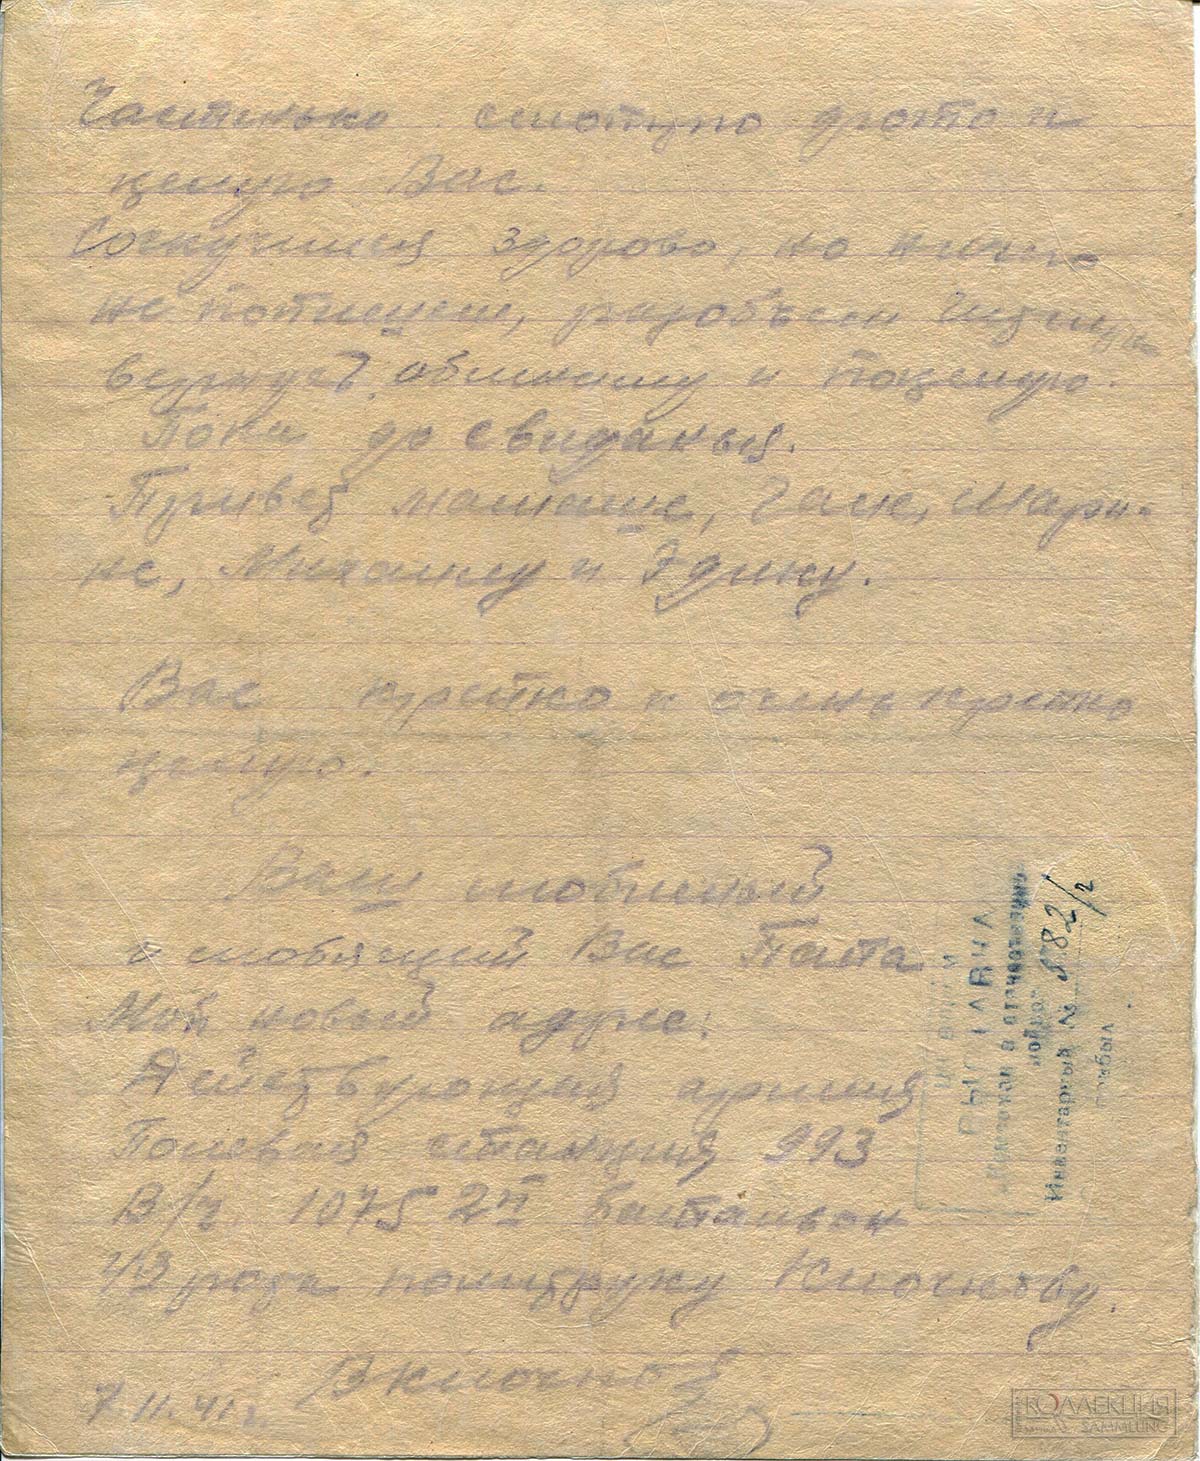 Частенько смотрю фото и
целую Вас.
Соскучился здорово, но ничего
не попишешь, разобъем Гитлера
вернусь, обниму и поцелую.
Пока до свиданья.
Привет мамаше, Гале, Мари-
не, Михаилу и Эдику.
Вас крепко и очень крепко
целую.
Ваш любимый
и любящий Вас Папа
Мой новый адрес:
Действующая армия
Полевая станция 993
В/ч. 1075 2й батальон
рота политруку Клочкову.
В Клочков
7.11.41 г.
Инвентарный № 582/2
КОЛЛЕКЦИЯ
SAMMLUNG